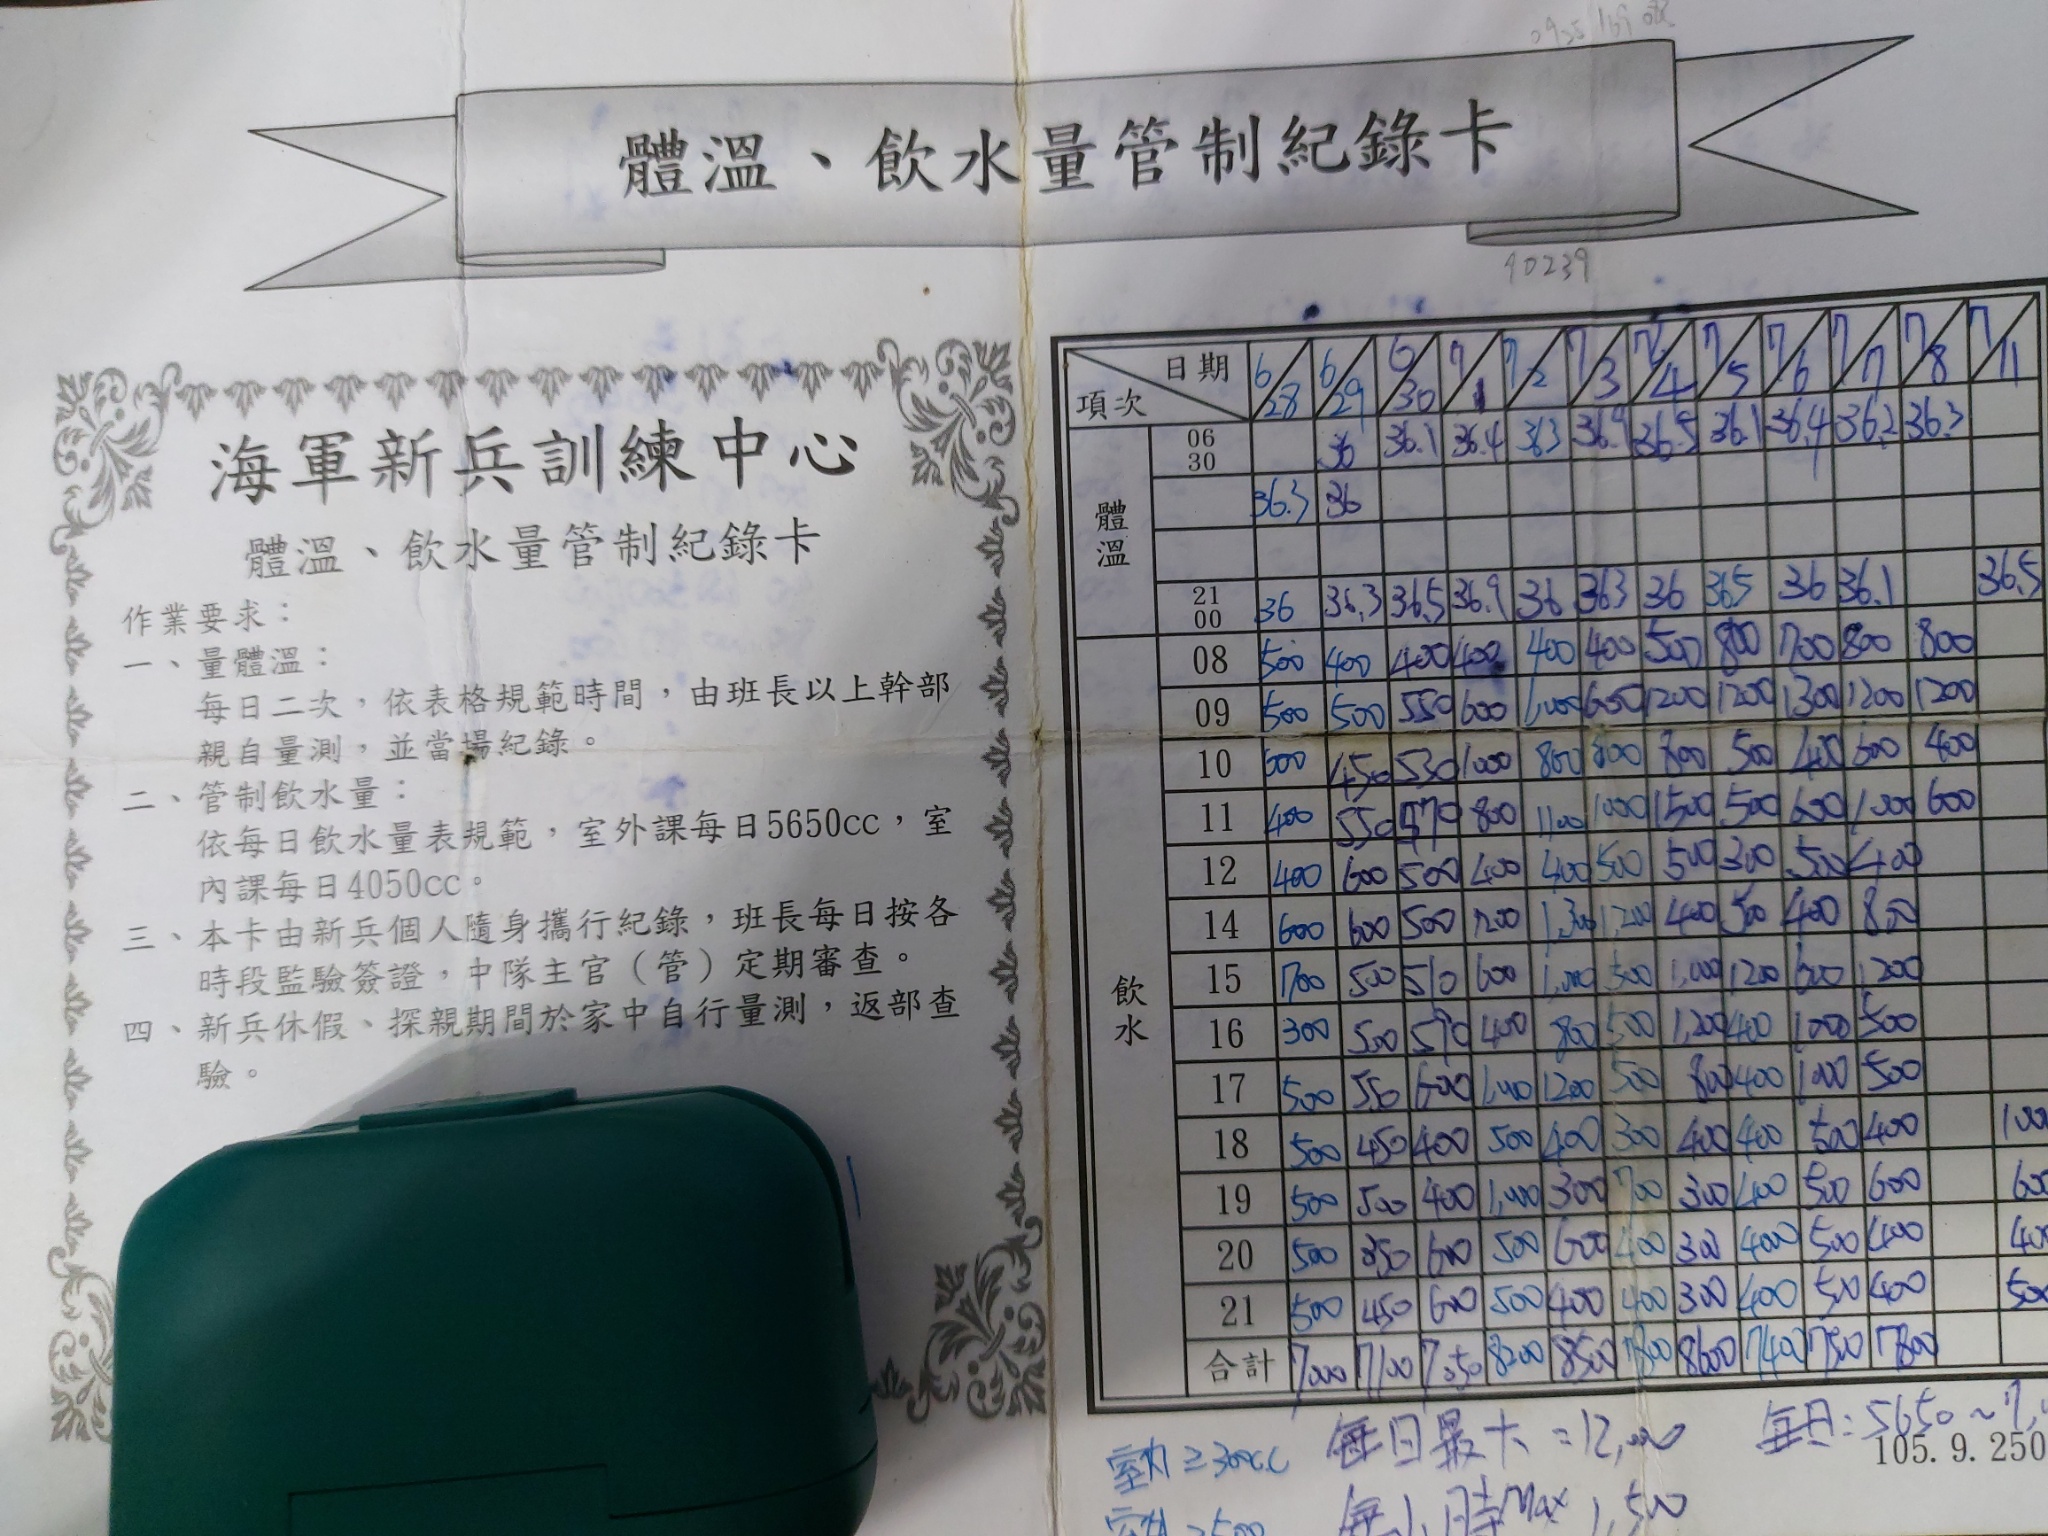 體溫、飲水量管制紀錄卡
90239
海軍新兵訓練中心
體溫、飲水量管制紀錄卡
作業要求：
一、量體溫：
每日二次，依表格規範時間，由班長以上幹部
親自量測，並當場紀錄。
二、管制飲水量：
依每日飲水量表規範，室外課每日5650cc，室
內課每日4050cc。
三、本卡由新兵個人隨身攜行紀錄，班長每日按各
時段監驗簽證，中隊主官（管）定期審查。
四、新兵休假、探親期間於家中自行量測，返部查
驗。
日期 6/28 6/29 6/30 7/1 7/2 7/3 7/4 7/5 7/6 7/7 7/8 7/11
項次
體溫
06 30 36 36.1 36.4 36.3 36.9 36.5 36.1 36.4 36.2 36.3
36.3 36
21 00 36 36.3 36.5 36.9 36 36.3 36 36.5 36 36.1 36.5
飲水
08 500 400 400 400 400 400 500 800 700 800 800
09 500 500 550 600 1,000 600 1200 1200 1300 1200 1200
10 600 450 530 1000 800 800 800 500 400 600 400
11 400 550 570 800 1100 1000 1500 500 600 1,000 600
12 400 600 500 400 400 500 500 300 500 400
14 600 600 500 1200 1,300 1,200 400 500 400 800
15 700 500 510 600 1,000 500 1,000 1200 600 1200
16 300 500 590 400 800 500 1,200 400 1000 500
17 500 550 600 1,000 1200 500 800 400 1,000 500
18 500 450 400 500 400 300 400 400 500 400
19 500 500 400 1,000 300 700 300 400 500 600
20 500 350 600 500 600 400 300 4000 500 400
21 500 450 600 500 400 400 300 400 500 400
合計 7,000 7100 7,050 8200 8500 7800 8600 7400 7500 7800
室內 ≥300c.c 每日最大=12,000 每日：5650~
105.9.250
每小時Max 1,500